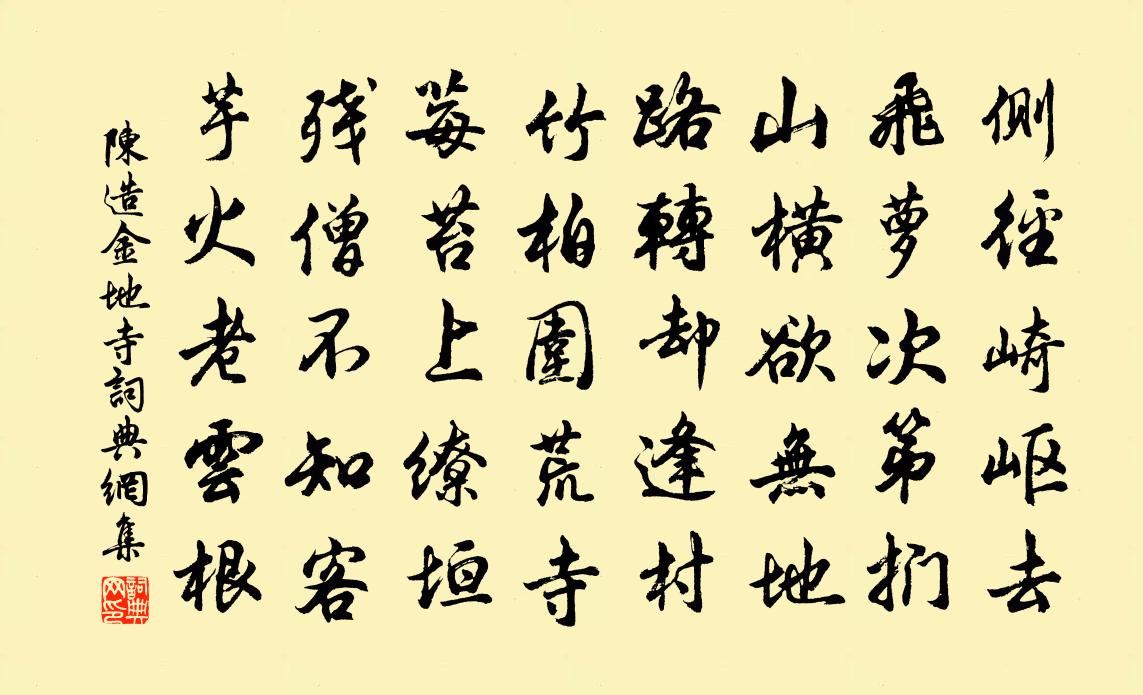 側徑崎岖去
飛萝次第捫
山橫欲無地
路轉却逢村
竹柏圍荒寺
莓苔上繚垣
残僧不知客
芋火老雲根
陳造金地寺詞典網集
詞典网印